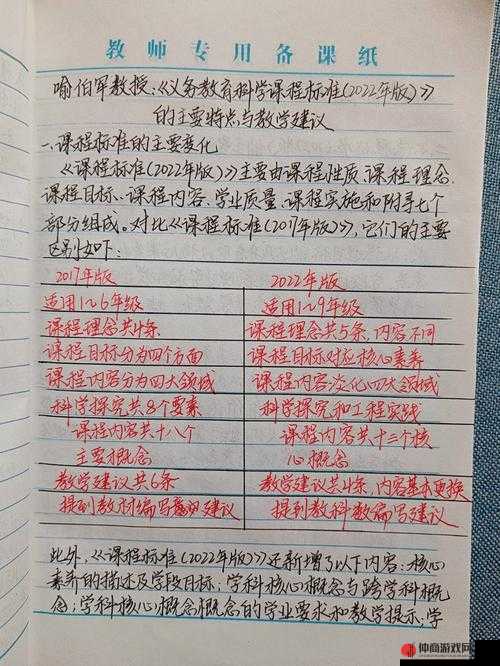 教师专用备课纸
喻伯军教授：《义务教育科学课程标准（2022年版）》
的主要特点与教学建议
一、课程标准的主要变化
《课程标准（2022年版）》主要由课程性质、课程理念、
课程目标、课程内容、学业质量、课程实施和附录七个
部分组成。对比《课程标准（2017年版）》，它们的主要
区别如下：
2017年版 2022年版
适用1~6年级 适用1~9年级
课程理念共4条 课程理念共5条，内容不同
课程目标分为四个方面 课程目标对应核心素养
课程内容分为四大领域 课程内容淡化四大领域
科学探究共8个要素 科学探究和工程实践
课程内容共十八个 课程内容共十三个核
主要概念 心概念
教学建议共6条 教学建议共4条，内容基本更换
提到教材编写建议 提到教科教编写建议
此外，《课程标准（2022年版）》还新增了以下内容：核心
素养的描述及学段目标；学科核心概念与跨学科概
念；学科核心概念概念的学业要求和教学提示；学
仲商游戏网